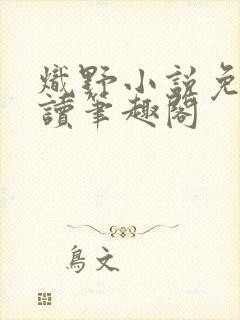 熾野小説免
讀筆趣閣
鳥文